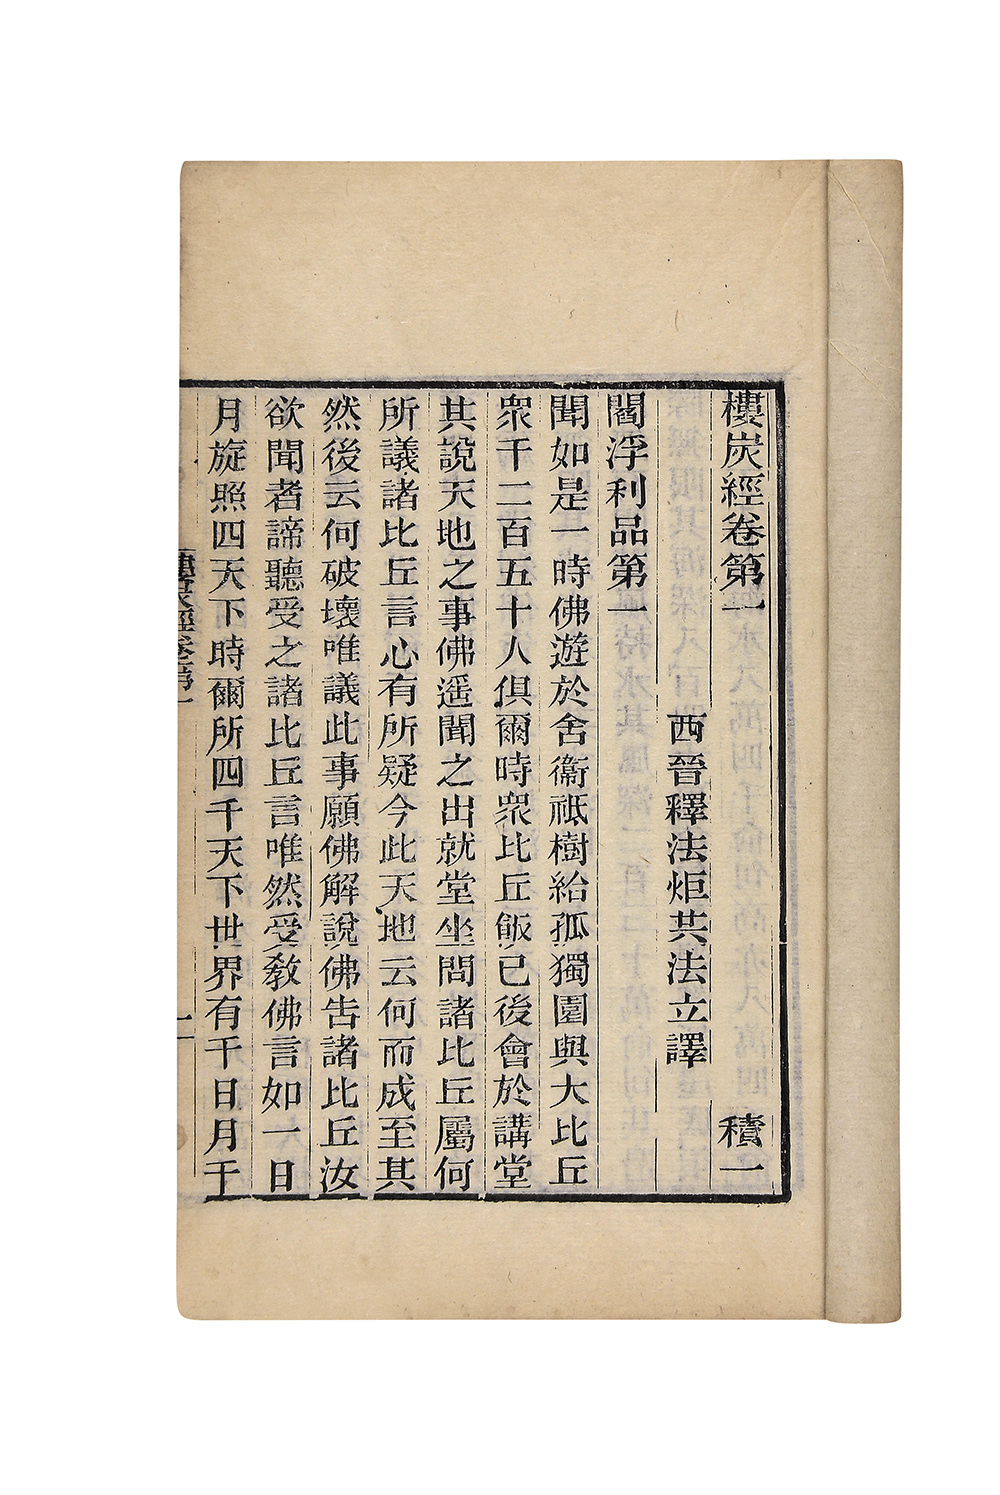 樓炭經卷第一 積一
西晉釋法炬共法立譯
閻浮利品第一
聞如是一時佛遊於舍衞祇樹給孤獨園與大比丘
衆千二百五十人俱爾時衆比丘飯已後會於講堂
其說天地之事佛遥聞之出就堂坐問諸比丘屬何
所議諸比丘言心有所疑今此天地云何而成至其
然後云何破壞唯議此事願佛解說佛告諸比丘汝
欲聞者諦聽受之諸比丘言唯然受敎佛言如一日
月旋照四天下時爾所四千天下世界有千日月千
樓炭經卷第一
一